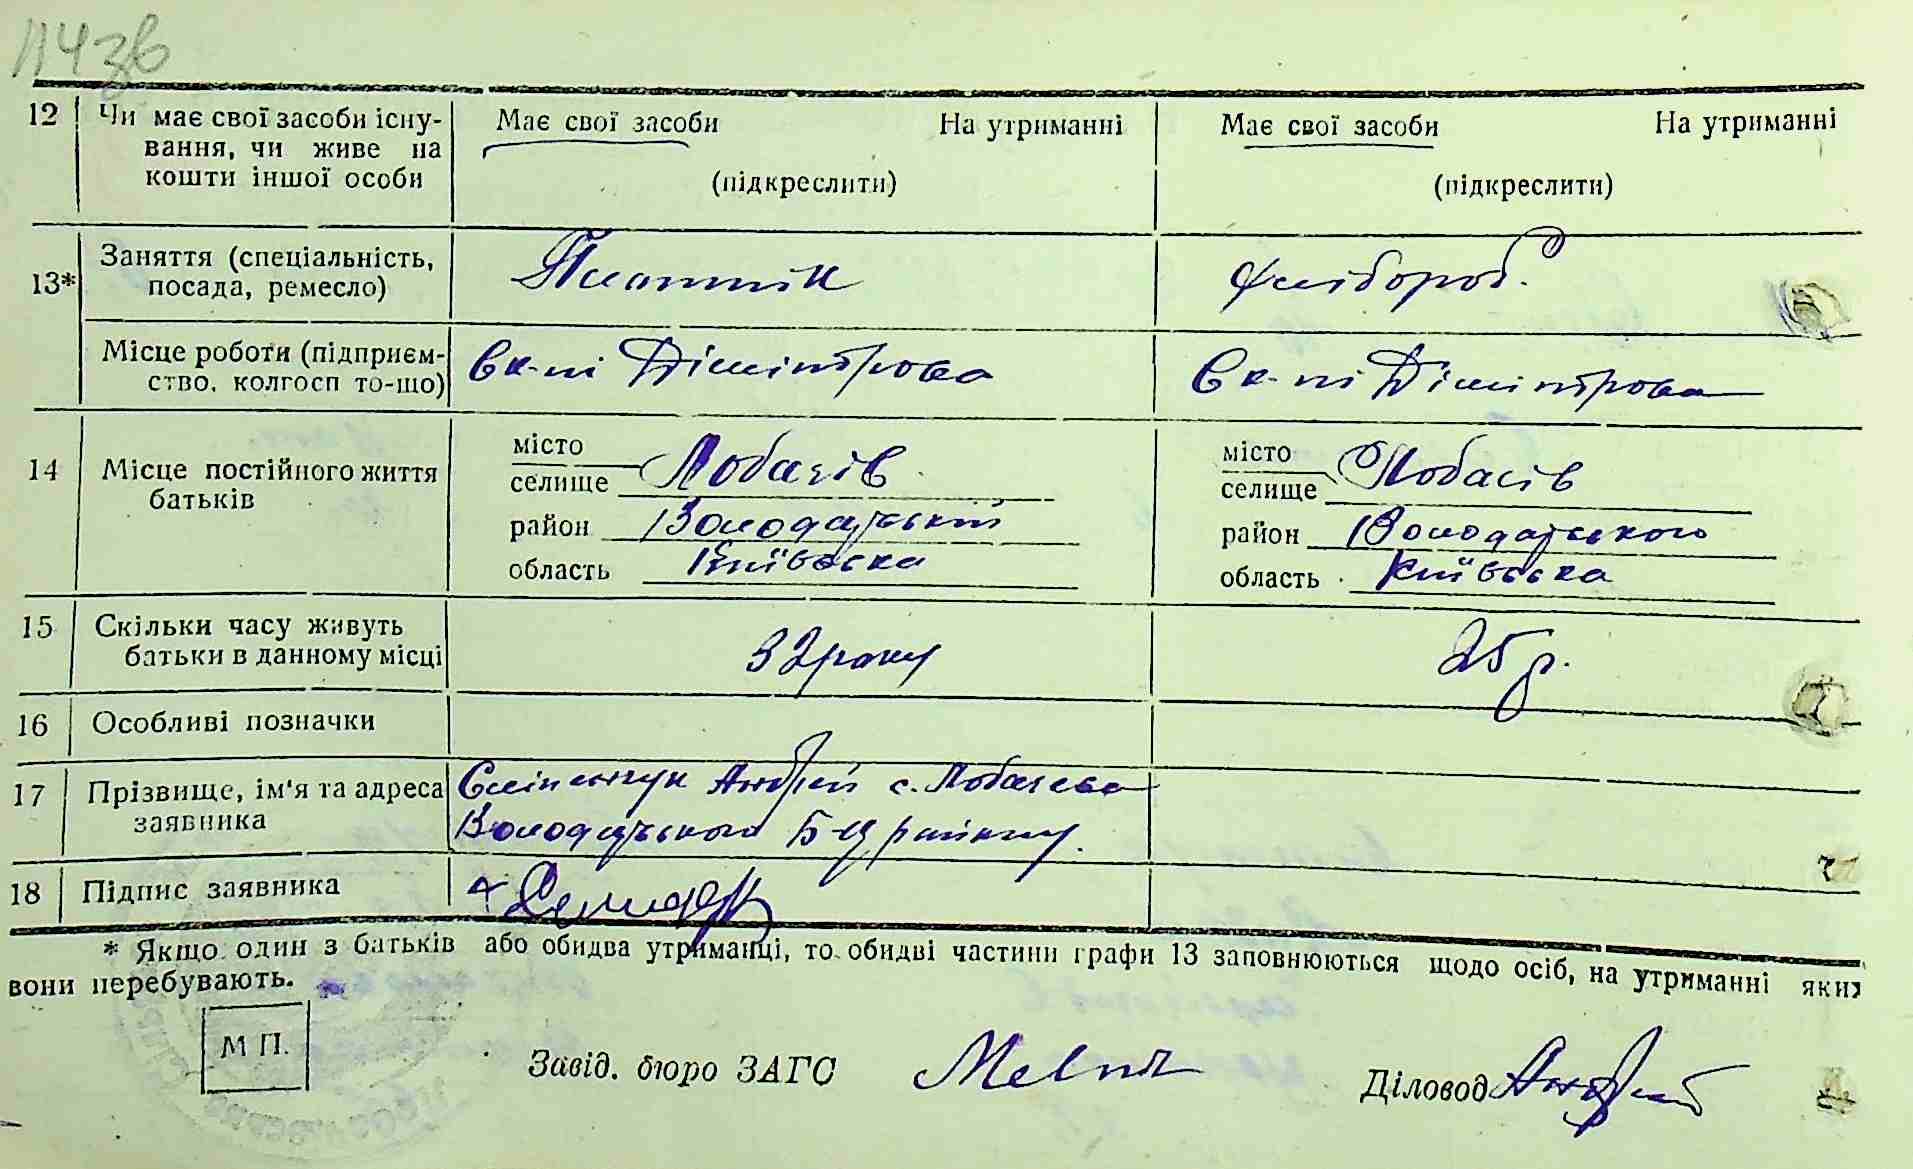 12 Чи має свої засоби існу- Має свої засоби На утриманні Має свої засоби На утриманні
вання, чи живе на
кошти іншої особи (підкреслити) (підкреслити)
13* Заняття (спеціальність, Плотнік хлібороб.
посада, ремесло)
Місце роботи (підприєм- Дімітрова Дімітрова
ство, колгосп то-що)
14 Місце постійного життя місто місто
батьків селище Лобачів селище Лобачів
район Володарський район Володарського
область Київська область Київська
15 Скільки часу живуть 32 роки 25 р.
батьки в данному місці
16 Особливі позначки
17 Прізвище, ім'я та адреса Андрій с. Лобачева
заявника Володарського Б-Ц району.
18 Підпис заявника
* Якщо один з батьків або обидва утриманці, то обидві частини графи 13 заповнюються щодо осіб, на утриманні яких
вони перебувають.
М П.
Завід. бюро ЗАГС Діловод